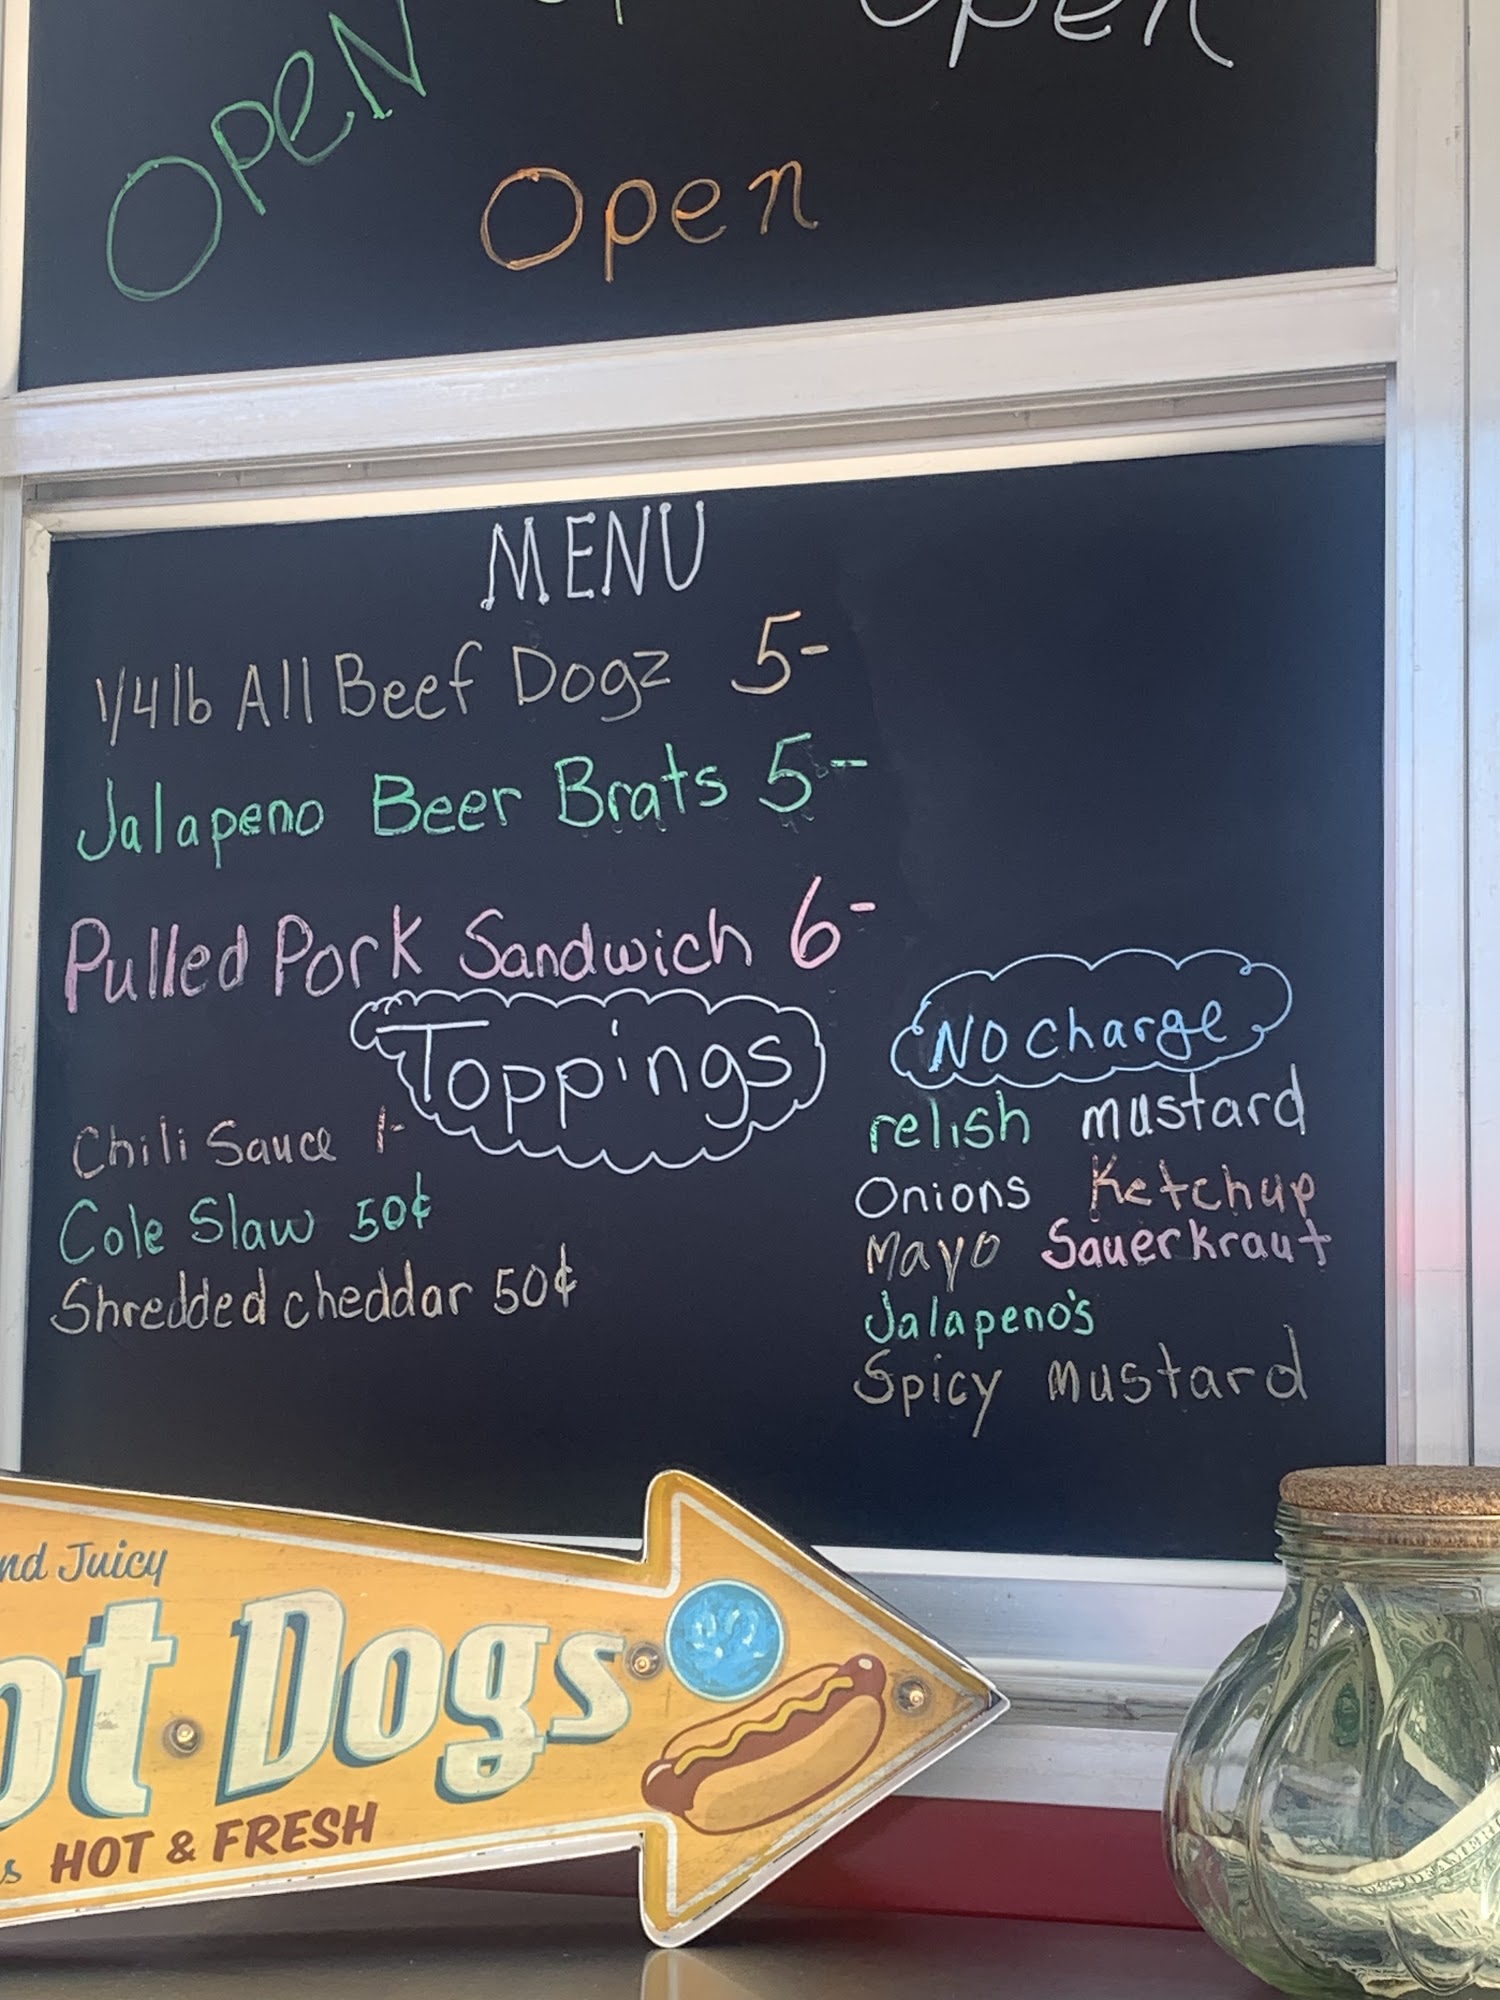 Open
Open
Open
MENU
1/4lb All Beef Dogz 5-
Jalapeno Beer Brats 5--
Pulled Pork Sandwich 6-
Toppings
Chili Sauce 1-
Cole Slaw 50¢
Shredded cheddar 50¢
No charge
relish mustard
Onions Ketchup
Mayo Sauerkraut
Jalapeno's
Spicy mustard
nd Juicy
ot Dogs
s HOT & FRESH